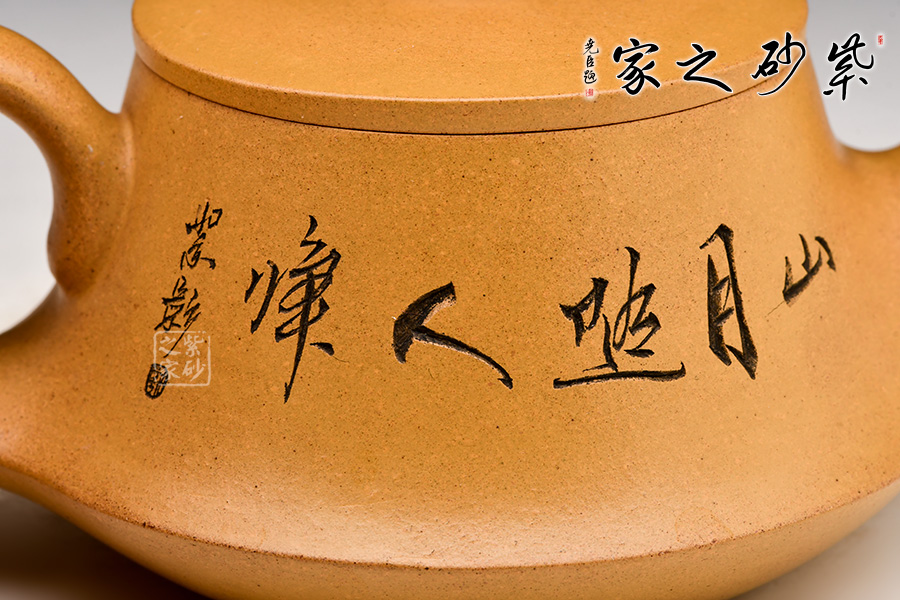 紫砂之家
尧臣题
山月照人歸
紫砂之家